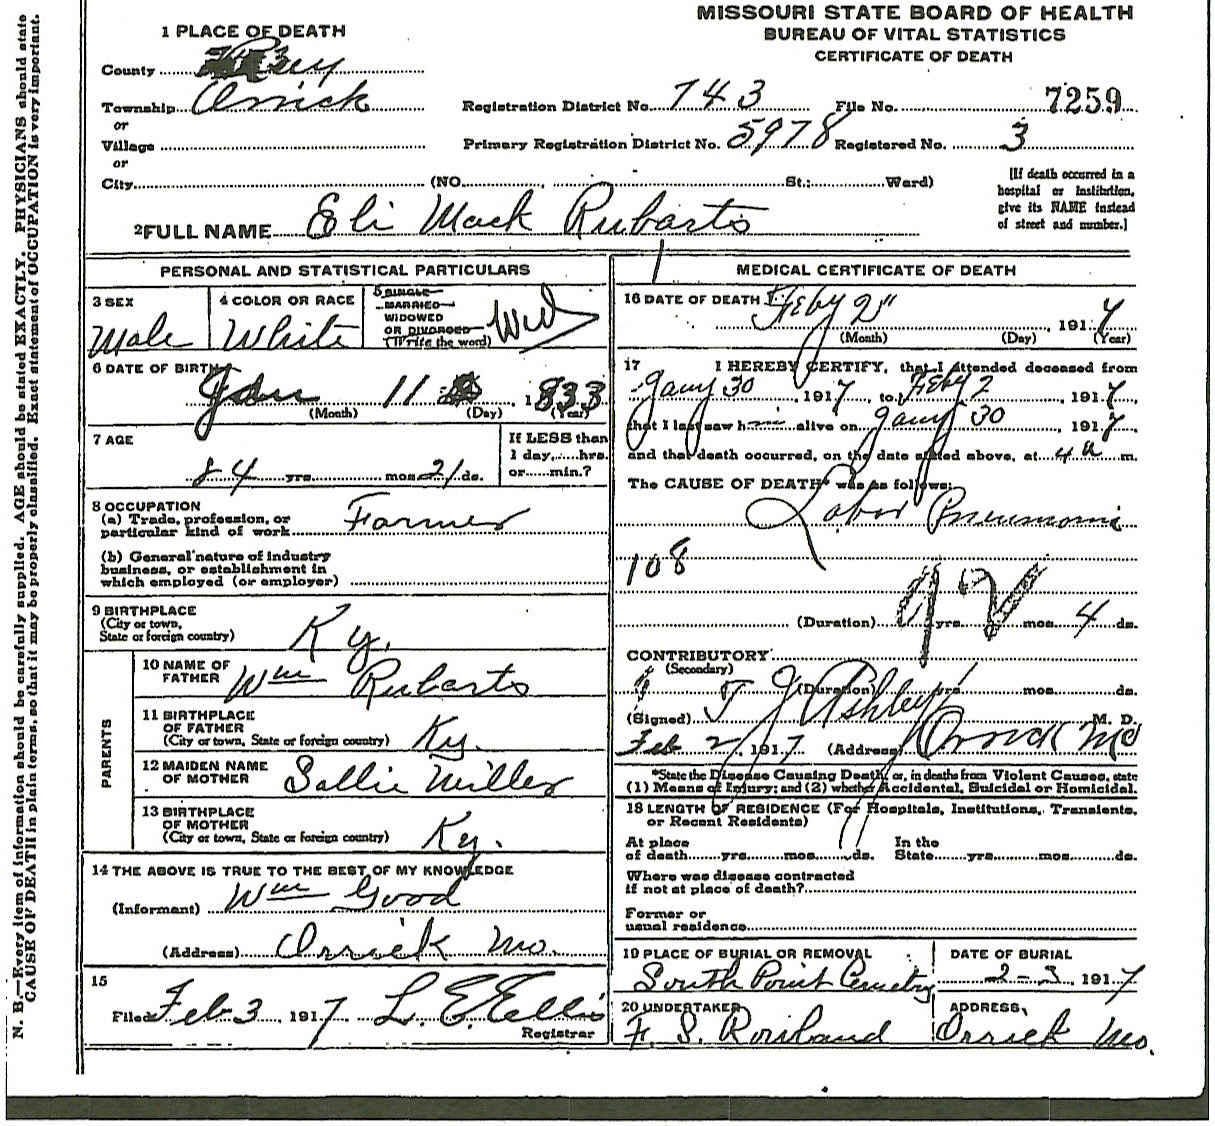 MISSOURI STATE BOARD OF HEALTH
BUREAU OF VITAL STATISTICS
CERTIFICATE OF DEATH
1 PLACE OF DEATH
County
Township Orrick Registration District No. 743 File No. 7259
or
Village Primary Registration District No. 5978 Registered No. 3
or
City (NO. , St.; Ward)
[If death occurred in a
hospital or institution,
give its NAME instead
of street and number.]
2 FULL NAME Eli Mack Rubarts
PERSONAL AND STATISTICAL PARTICULARS
3 SEX
Male
4 COLOR OR RACE
White
5 SINGLE
MARRIED
WIDOWED
OR DIVORCED
(Write the word)
Wid
6 DATE OF BIRTH
Jan 11 , 1833
(Month) (Day) (Year)
7 AGE
84 yrs. mos. 21 ds.
If LESS than
1 day,......hrs.
or......min.?
8 OCCUPATION
(a) Trade, profession, or
particular kind of work Farmer
(b) General nature of industry
business, or establishment in
which employed (or employer)
9 BIRTHPLACE
(City or town,
State or foreign country) Ky.
PARENTS
10 NAME OF
FATHER Wm Rubarts
11 BIRTHPLACE
OF FATHER
(City or town, State or foreign country) Ky.
12 MAIDEN NAME
OF MOTHER Sallie Miller
13 BIRTHPLACE
OF MOTHER
(City or town, State or foreign country) Ky.
14 THE ABOVE IS TRUE TO THE BEST OF MY KNOWLEDGE
(Informant) Wm Good
(Address) Orrick Mo.
15
Filed Feb 3 , 1917 L. E. Ellis
Registrar
MEDICAL CERTIFICATE OF DEATH
16 DATE OF DEATH Feby 2" , 1917
(Month) (Day) (Year)
17 I HEREBY CERTIFY, that I attended deceased from
Jany 30 , 1917, to Feby 2 , 1917,
that I last saw him alive on Jany 30 , 1917,
and that death occurred, on the date stated above, at 4 a m.
The CAUSE OF DEATH* was as follows:
Lobar Pneumoni
108
92
(Duration) yrs. mos. 4 ds.
CONTRIBUTORY
(Secondary)
(Duration) yrs. mos. ds.
(Signed) T J Ashley M. D.
Feb 2, 1917 (Address) Orrick Mo
*State the Disease Causing Death, or, in deaths from Violent Causes, state
(1) Means of Injury; and (2) whether Accidental, Suicidal or Homicidal.
18 LENGTH OF RESIDENCE (For Hospitals, Institutions, Transients,
or Recent Residents)
At place
of death......yrs......mos......ds.
In the
State......yrs......mos......ds.
Where was disease contracted
if not at place of death?
Former or
usual residence
19 PLACE OF BURIAL OR REMOVAL
South Point Cemetry
DATE OF BURIAL
2-3 , 1917
20 UNDERTAKER
F. S. Rowland
ADDRESS,
Orrick Mo.
N. B.—Every item of information should be carefully supplied. AGE should be stated EXACTLY. PHYSICIANS should state
CAUSE OF DEATH in plain terms, so that it may be properly classified. Exact statement of OCCUPATION is very important.